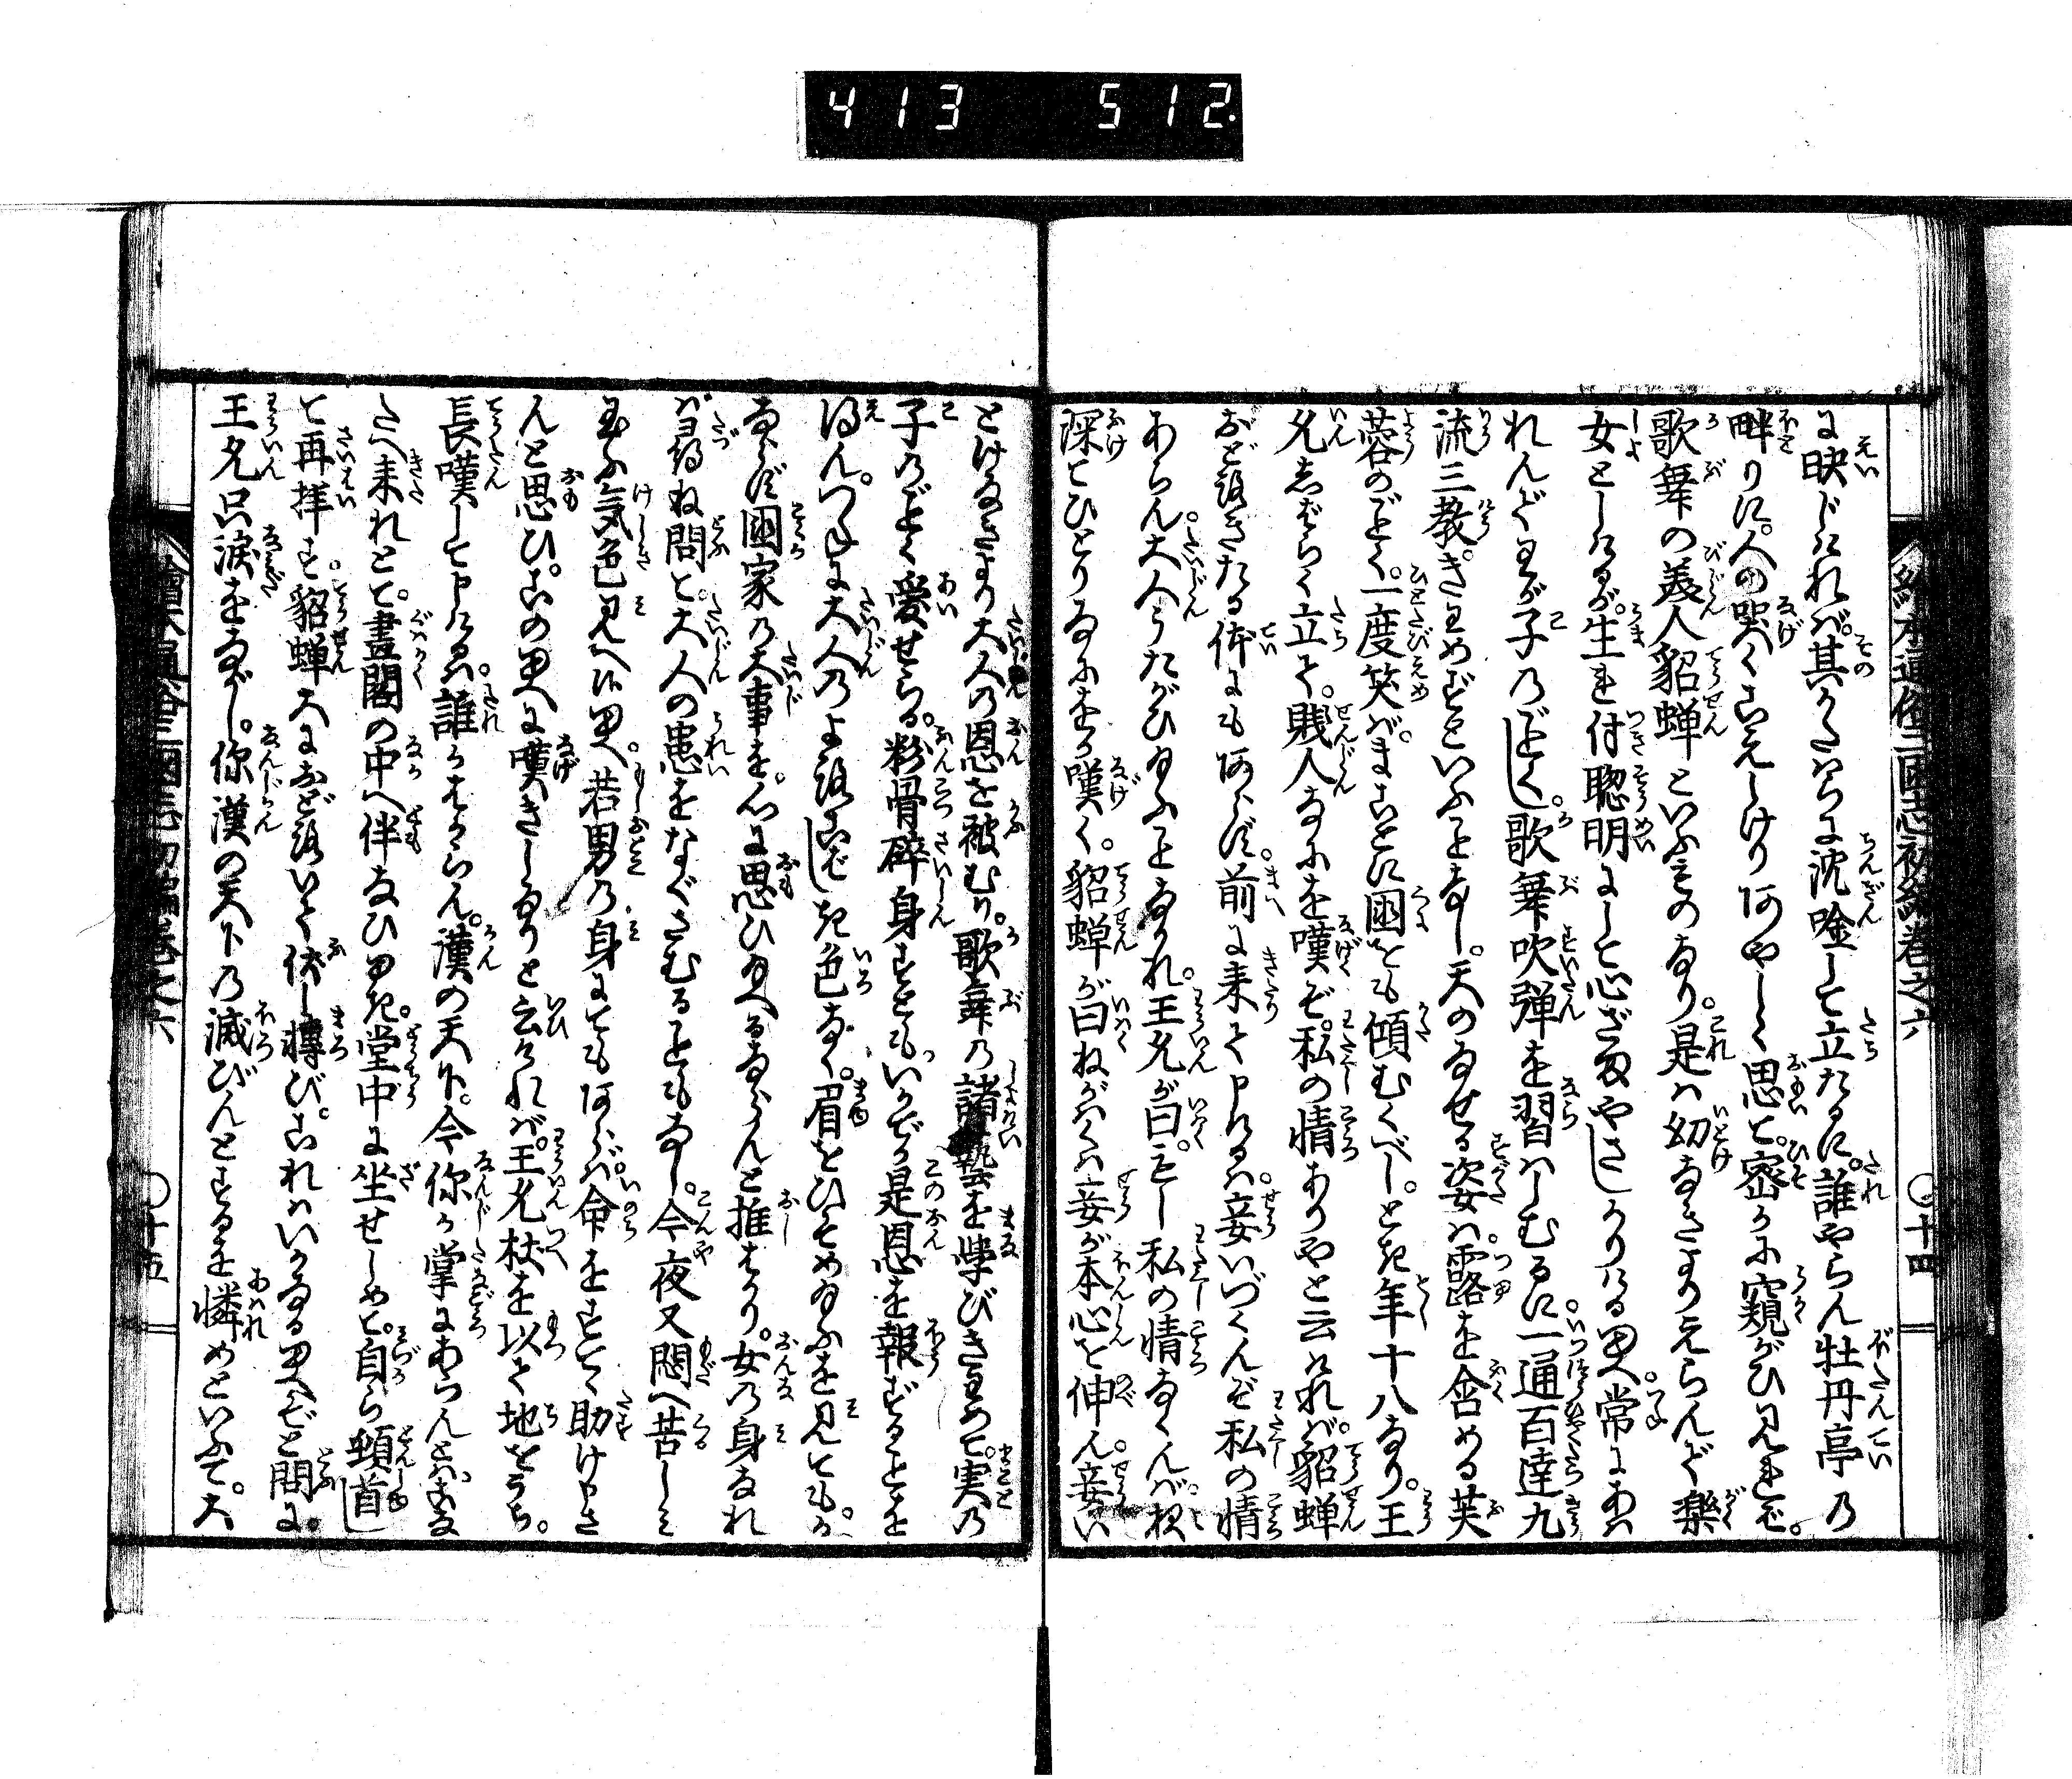 413 512.
絵本通俗三国志初編巻之六 〇十四
に映じければ。其かたはらに沈唫して立たるに。誰やらん牡丹亭の
畔りに。人の哭くこえしけり阿やしく思と。密かに窺がひ見れば。
歌舞の義人貂蝉といふものなり。是ハ幼なきよりえらんで樂
女としけるが。生れ付聡明にして心ざまやさしかりける由へ。常にあは
れんでわが子のごとし。歌舞吹弾を習ハしむるに。一通百達九
流三教。きわめずといふことなし。天のなせる姿ハ。露を含める芙
蓉のごとく。一度笑ば。まことに國をも傾むくべし。とき年十八なり。王
允しばらく立て。賤人なにを嘆ぞ。私の情ありやと云ければ。貂蝉
おどろきたる体にも阿らず。前に来て申けるハ。妾いづくんぞ私の情
あらん。大人うたがひ給ふことなかれ。王允が曰。もし私の情なくんば夜
深てひとりなにをか嘆く。貂蝉が曰ねがハくハ妾が本心を伸ん。妾い
とけなきより大人の恩を被むり。歌舞の諸藝を学びきわめて。実の
子のごとく愛せらる。粉骨碎身すとも。いかでか是恩を報ずることを
得ん。つねに大人のよろこばしき色なく。眉をひそめ給ふを見とも。か
ならず國家の大事を。心に思ひ給へるならんと推はかり。女の身なれ
ば尋ね問と。大人の患をなぐさむることもなし。今夜又悶へ苦しミ
玉ふ気色見へ候由へ。若男の身にても阿らバ。命をすてゝ助け申さ
んと思ひ。この由へに嘆きしなりと云ければ。王允杖を以て地をうち。
長嘆して申けるハ。誰かはからん。漢の天下。今你が掌にあらんとハ。こな
たへ来れとて。畫閣の中へ伴なひ由き。堂中に坐せしめて。自ら頓首し
て再拝す。貂蝉大におどろいて伏し轉び。これハいかなる由へぞと問に。
王允只涙をながし。你漢の天下の滅びんとするを憐めといふて。大
繪本通俗三國志初編巻之六 〇十五